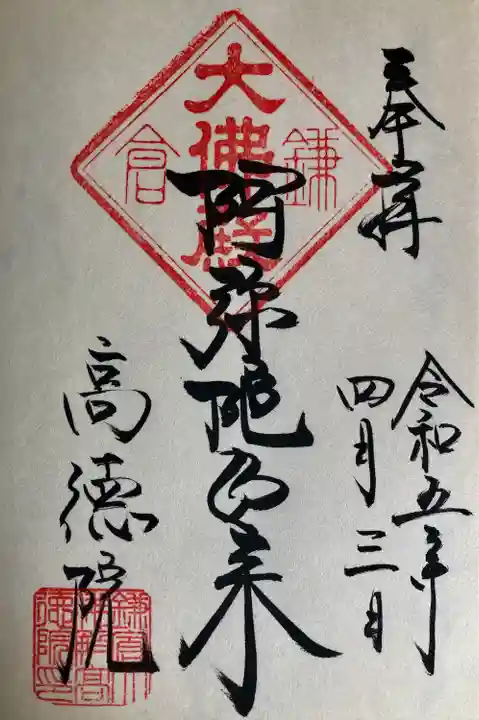 奉拝
令和五年
四月三日
鎌倉
大佛殿
阿弥陀如来
高徳院